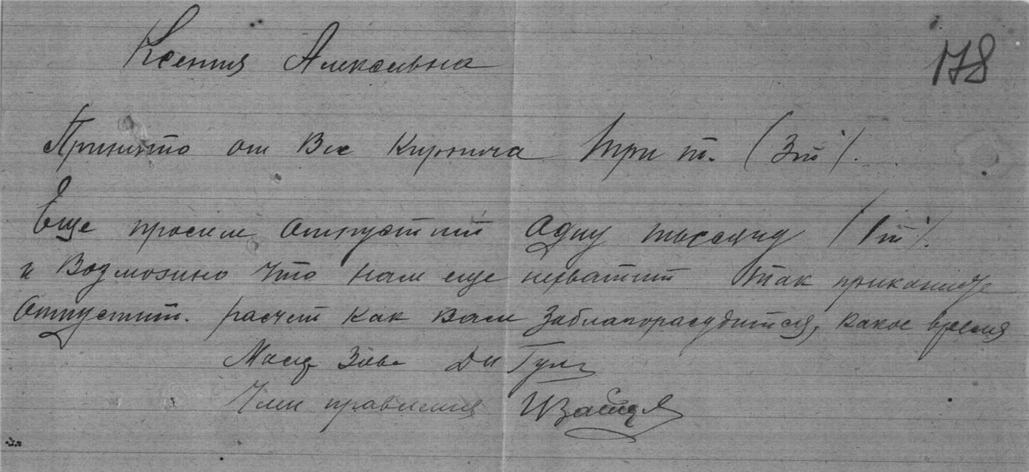 178
Ксения Алексевна
Принято от Вас Кирпича три т. (3т).
Еще просим отпустит одну тысячу (1т).
и Возможно что нам еще нехватит так прикажите
отпустит. расчет как вам заблагорасудится, какое время
Член правления